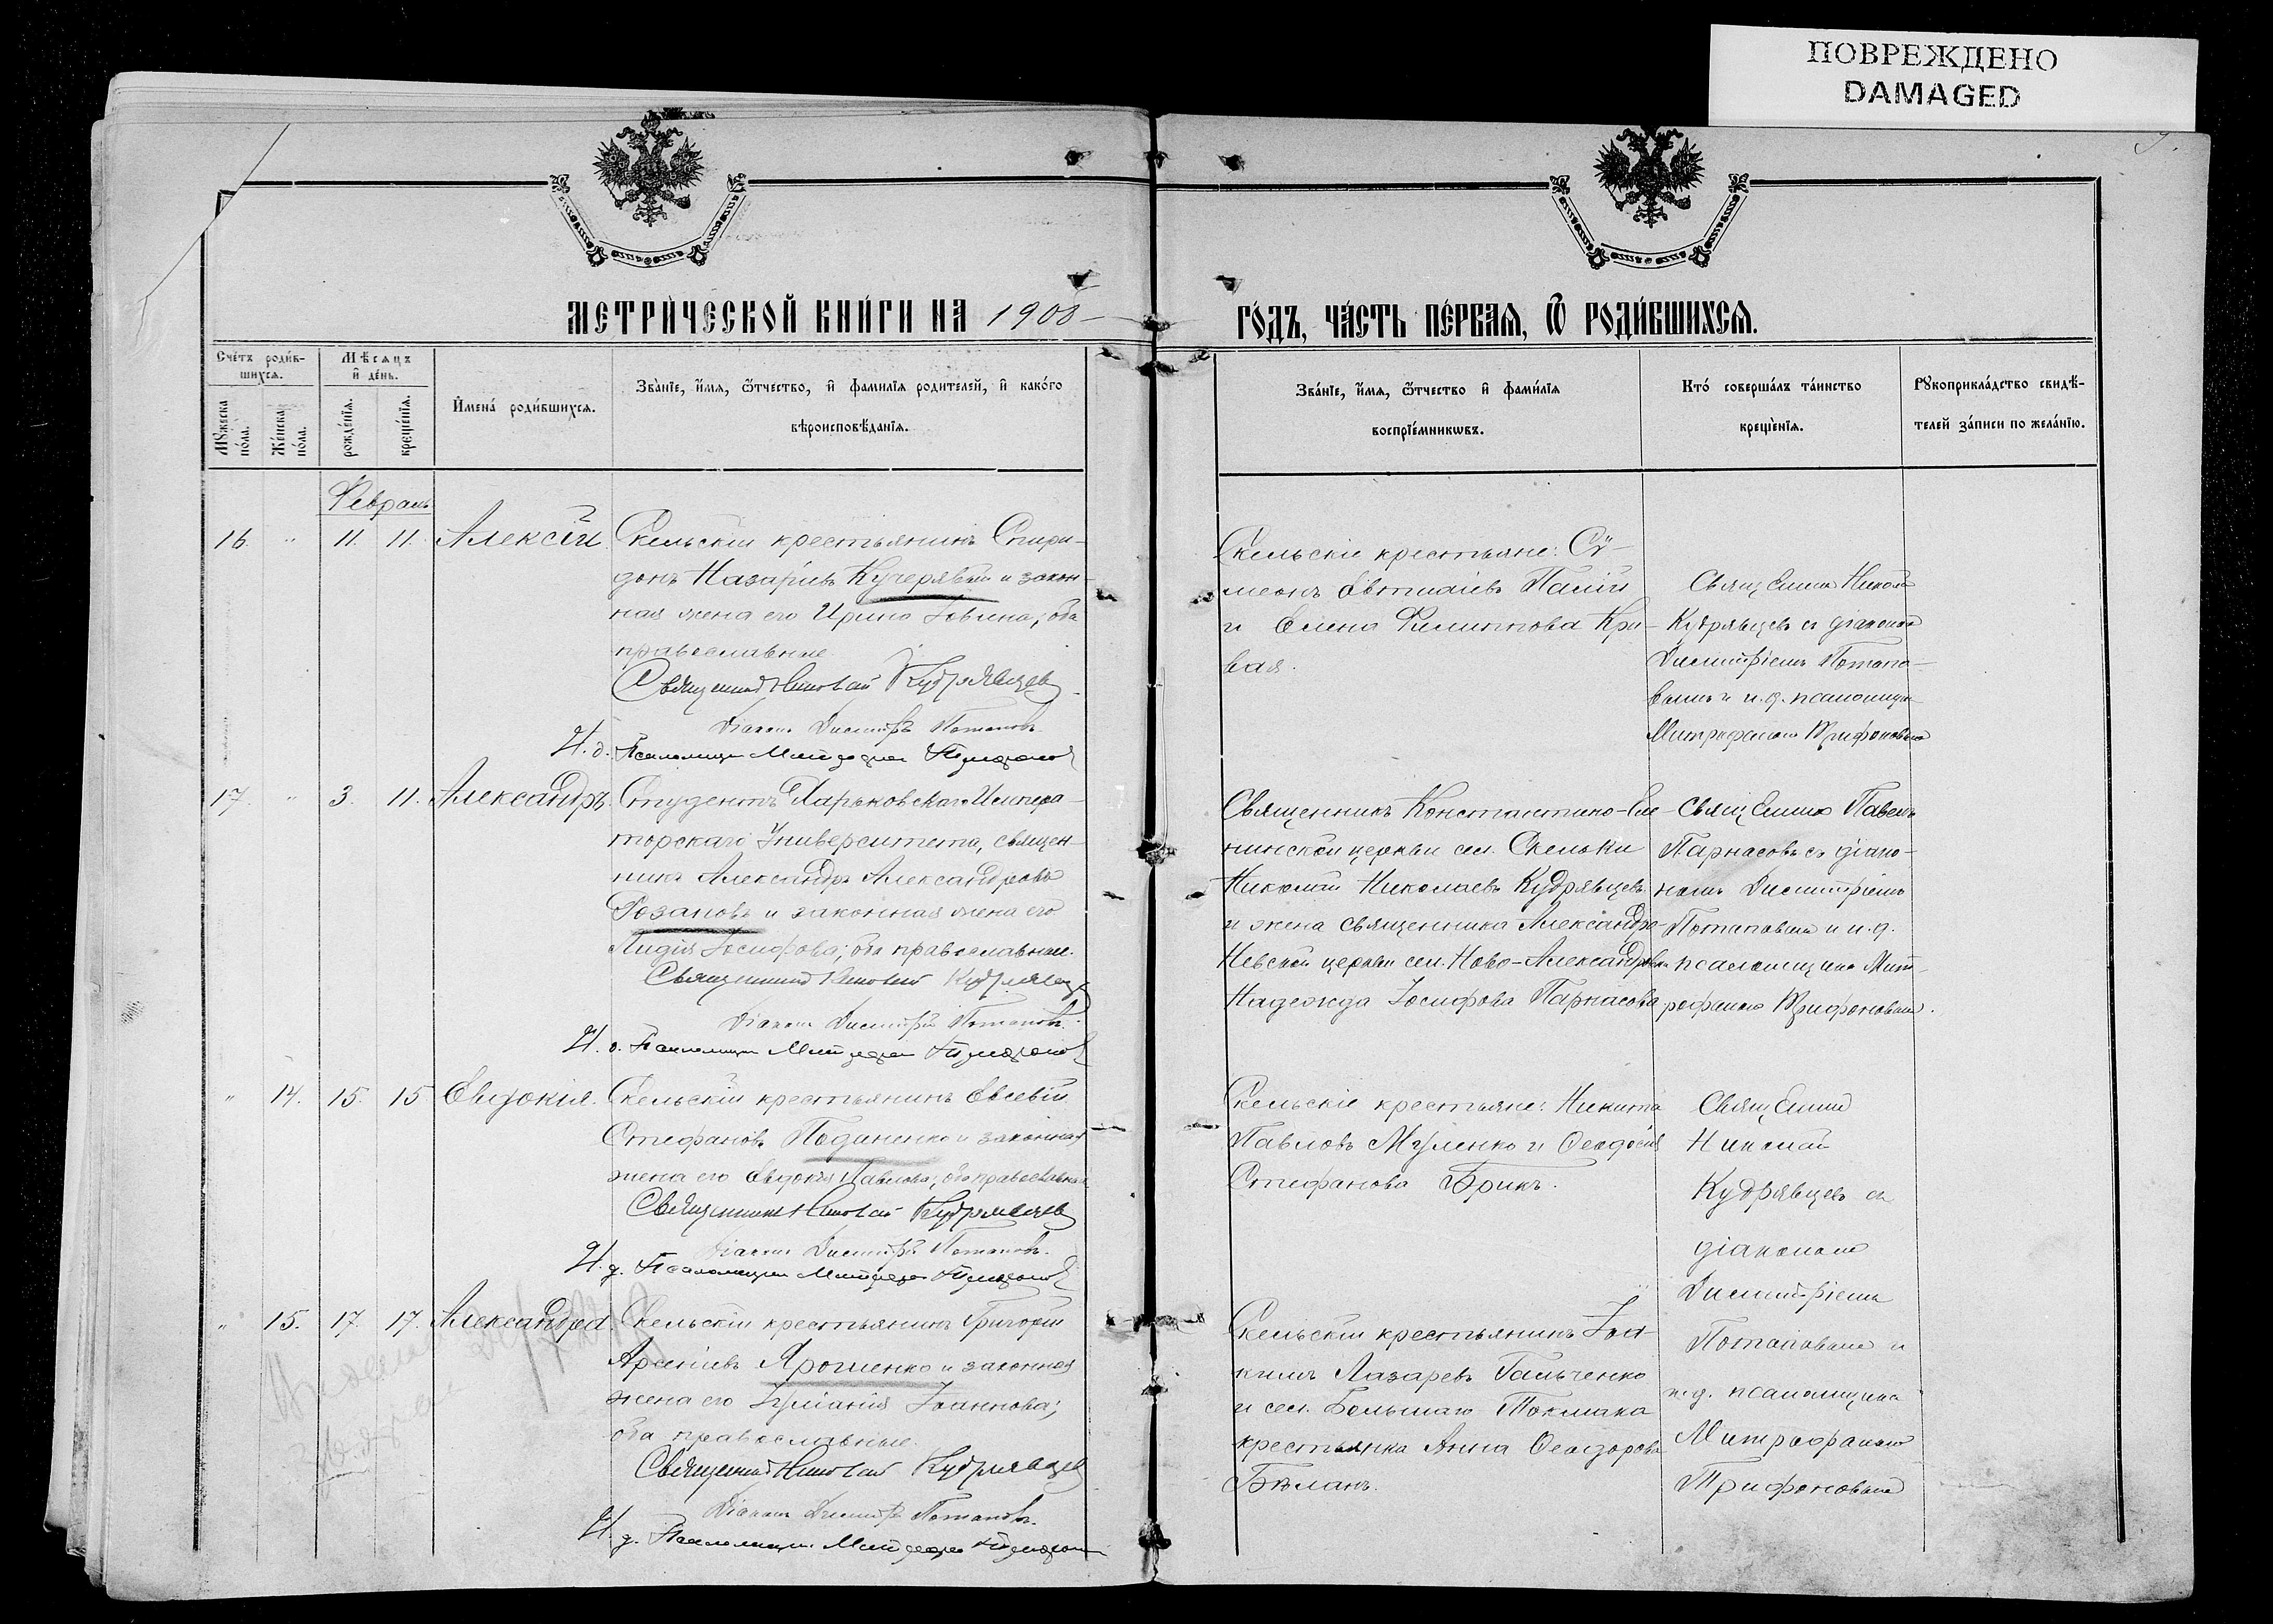 ПОВРЕЖДЕНО
DAMAGED
МЕТРИ́ЧЕСКОЙ КНИ́ГИ НА 1908
ГО́ДЪ, ЧА́СТЬ ПЕ́РВАѦ, Ѿ РОДИ́ВШИХСѦ.
Сче́тъ роди́в-
шихсѧ.
Мꙋ́жеска по́ла.
Же́нска по́ла.
Мѣ́сѧцъ
и҆ де́нь.
рожде́нїѧ.
креще́нїѧ.
И҆мена̀ роди́вшихсѧ.
Зва́нїе, и҆́мѧ, ѻ҆́тчество, и҆ фами́лїѧ роди́телей, и҆ како́го
вѣроисповѣ́данїѧ.
Зва́нїе, и҆́мѧ, ѻ҆́тчество и҆ фами́лїѧ
воспрїе́мникѡвъ.
Кто́ соверша́лъ та́инство
креще́нїѧ.
Рꙋкоприкла́дство свидѣ́-
телей за́писи по жела́нїю.
Февраль
16. " 11. 11. Алексѣй
Скельскій крестьянинъ Спири-
донъ Назаріевъ Кучерявый и закон-
ная жена его Ирина Іовлева; оба
православные.
Священникъ Николай Кудрявцевъ
Діаконъ Димитрій Потаповъ.
И. д. Псаломщика Митрофанъ Трифоновъ
Скельскіе крестьяне: Сѵ-
меонъ Евтихіевъ Палій
и Елена Филиппова Кри-
вая.
Священникъ Николай
Кудрявцевъ съ діакономъ
Димитріемъ Потапо-
вымъ и и. д. псаломщика
Митрофаномъ Трифоновымъ
17. " 3. 11. Александръ
Студентъ Харьковскаго Импера-
торскаго Университета, священ-
никъ Александръ Александровъ
Розановъ и законная жена его
Лидія Іосифова; оба православные.
Священникъ Николай Кудрявцевъ
Діаконъ Димитрій Потаповъ.
И. д. Псаломщика Митрофанъ Трифоновъ
Священникъ Константино-Еле-
нинской церкви сел. Скельки
Николай Николаевъ Кудрявцевъ
и жена священника Александро-
Невской церкви сел. Ново-Александровки
Надежда Іосифова Парнасова
Священникъ Павелъ
Парнасовъ съ діако-
номъ Димитріемъ
Потаповымъ и и. д.
псаломщика Мит-
рофаномъ Трифоновымъ.
" 14. 15. 15. Евдокія.
Скельскій крестьянинъ Евсевій
Стефановъ Подиненко и законная
жена его Евдокія Павлова; оба православные
Священникъ Николай Кудрявцевъ
Діаконъ Димитрій Потаповъ.
И. д. Псаломщика Митрофанъ Трифоновъ
Скельскіе крестьяне: Никита
Павловъ Муленко и Ѳеодосія
Стефанова Брикъ.
Священникъ
Николай
Кудрявцевъ съ
діакономъ
Димитріемъ
Потаповымъ и
и. д. псаломщика
Митрофаномъ
Трифоновымъ
" 15. 17. 17. Александра
Скельскій крестьянинъ Григорій
Арсеніевъ Ярошенко и законная
жена его Іуліанія Іоаннова;
оба православные.
Священникъ Николай Кудрявцевъ
Діаконъ Димитрій Потаповъ.
И. д. Псаломщика Митрофанъ Трифоновъ
Скельскій крестьянинъ Іоа-
кимъ Лазаревъ Гальченко
и сел. Большаго Токмака
крестьянка Анна Ѳеодорова
Бѣланъ.